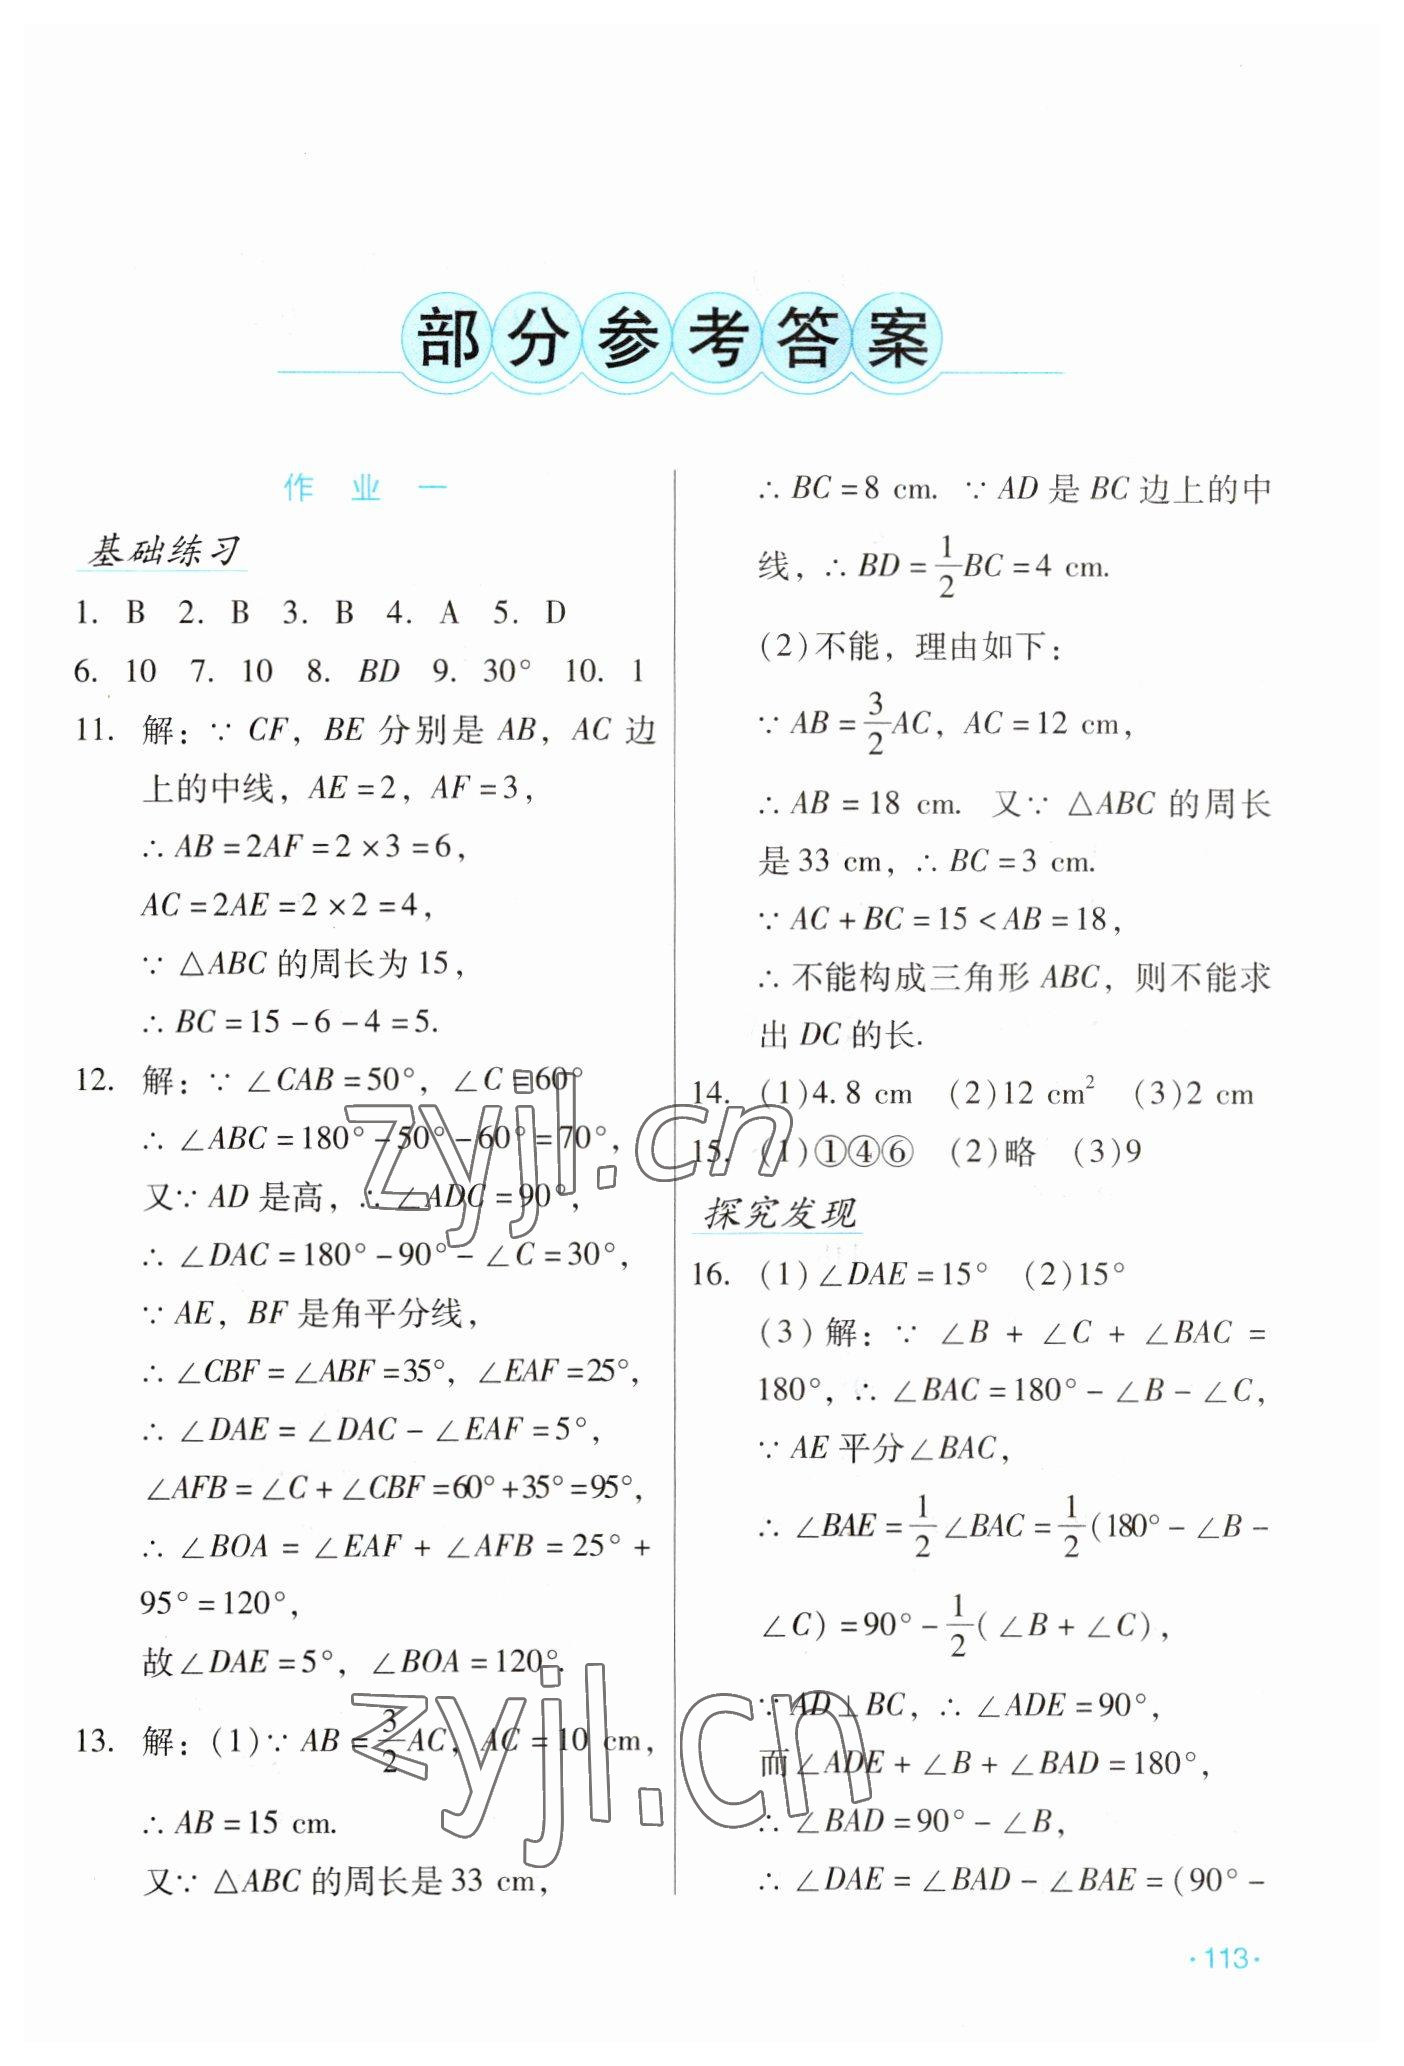 部分参考答案
作 业 一
基础练习
1. B 2. B 3. B 4. A 5. D
6. 10 7. 10 8. BD 9. 30° 10. 1
11. 解：∵ CF，BE 分别是 AB，AC 边
上的中线，AE=2，AF=3，
∴ AB=2AF=2×3=6，
AC=2AE=2×2=4，
∵ △ABC 的周长为 15，
∴ BC=15-6-4=5.
12. 解：∵ ∠CAB=50°，∠C=60°
∴ ∠ABC=180°-50°-60°=70°，
又∵ AD 是高，∴ ∠ADC=90°，
∴ ∠DAC=180°-90°-∠C=30°，
∵ AE，BF 是角平分线，
∴ ∠CBF=∠ABF=35°，∠EAF=25°，
∴ ∠DAE=∠DAC-∠EAF=5°，
∠AFB=∠C+∠CBF=60°+35°=95°，
∴ ∠BOA=∠EAF+∠AFB=25°+
95°=120°，
故∠DAE=5°，∠BOA=120°.
13. 解：(1)∵ AB=3/2AC，AC=10 cm，
∴ AB=15 cm.
又∵ △ABC 的周长是 33 cm，
∴ BC=8 cm. ∵ AD 是 BC 边上的中
线，∴ BD=1/2BC=4 cm.
(2)不能，理由如下：
∵ AB=3/2AC，AC=12 cm，
∴ AB=18 cm. 又∵ △ABC 的周长
是 33 cm，∴ BC=3 cm.
∵ AC+BC=15<AB=18，
∴ 不能构成三角形 ABC，则不能求
出 DC 的长.
14. (1)4.8 cm (2)12 cm² (3)2 cm
15. (1)①④⑥ (2)略 (3)9
探究发现
16. (1)∠DAE=15° (2)15°
(3)解：∵ ∠B+∠C+∠BAC=
180°，∴ ∠BAC=180°-∠B-∠C，
∵ AE 平分∠BAC，
∴ ∠BAE=1/2∠BAC=1/2(180°-∠B-
∠C)=90°-1/2(∠B+∠C)，
∵ AD⊥BC，∴ ∠ADE=90°，
而∠ADE+∠B+∠BAD=180°，
∴ ∠BAD=90°-∠B，
∴ ∠DAE=∠BAD-∠BAE=(90°-
·113·
zyjl.cn
zyjl.cn